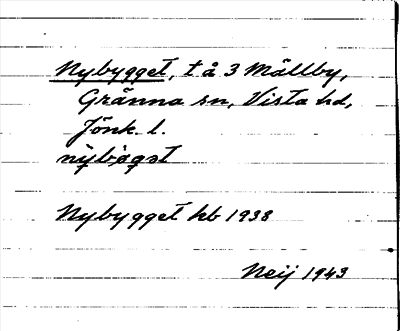 Nybygget, t å 3 Mällby,
Gränna sn, Vista hd,
Jönk. l.
Nybygget kb 1938
Neij 1943